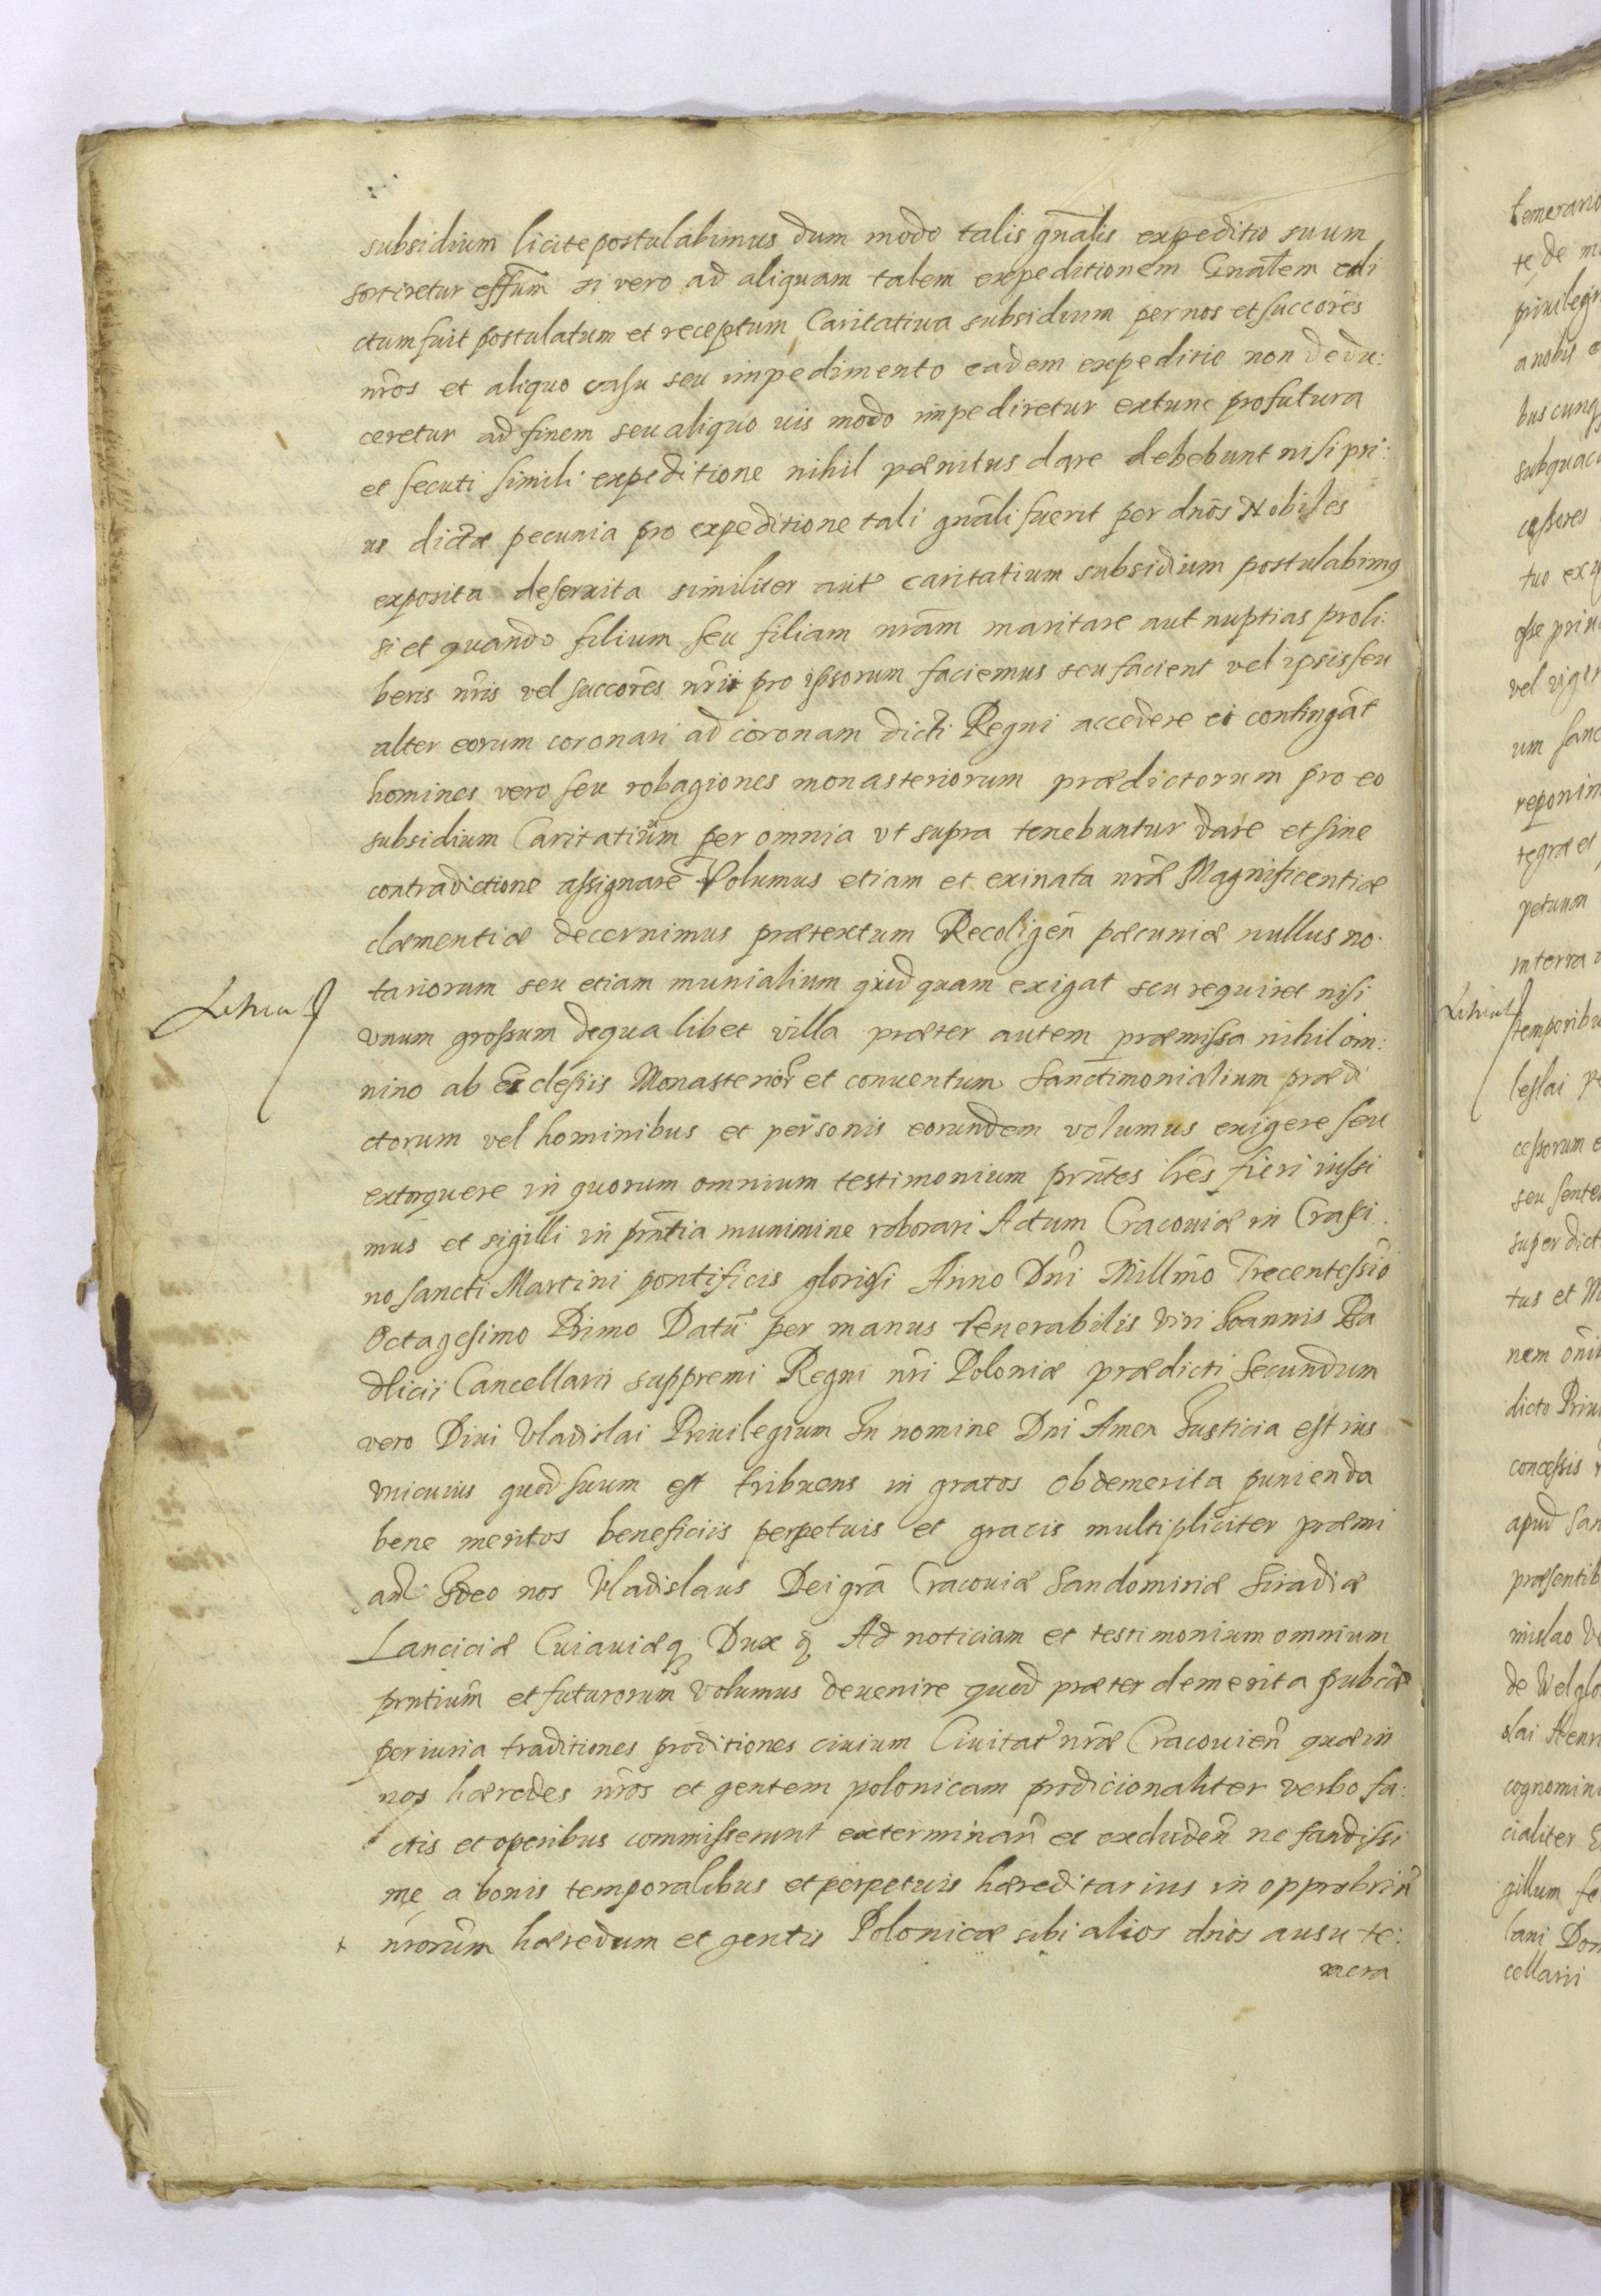 subsidium licite postulabimus dum modo talis gnãlis expeditio suum
sortiretur effũm si vero ad aliquam talem expeditionem Gnãlem edi
ctum fuit postulatum et receptum Caritatiua subsidium per nos et succorẽs
nr̃os et aliquo casu seu impedimento eadem expeditio non dedu:
ceretur ad finem seu aliquo uis modo impediretur extunc profutura
et secuti simili expeditione nihil pænitus dare debebunt nisi pri:
us dictæ pecunia pro expeditione tali gnãli fuerit per dnõs Nobiles
exposita deseruita similiter aut caritatium subsidium postulabimus
si et quando filium seu filiam nr̃am maritare aut nuptias pro li:
beris nr̃is vel succorẽs nr̃ii pro ipsorum faciemus seu facient vel ipsis seu
alter eorum coronari ad coronam dicti Regni accedere ei contingãt
homines vero seu robagiones monasteriorum prædictorum pro eo
subsidium Caritatiũm per omnia vt supra tenebuntur dare et sine
contradictione assignare Volumus etiam et exinata nr̃æ Magnificentiæ
clæmentiæ decernimus prætextum Recoligeñ pæcuniæ nullus no.
tariorum seu etiam munialium quidquam exigat seu requiret nisi
vnum grossum de qua libet villa præter autem præmissa nihil om̃:
nino ab Ecclesiis Monasterior̃ et conuentum Sanctimonialium prædi
ctorum vel hominibus et personis eorundem volumus exigere seu
extorquere in quorum omnium testimonium prñtes lr̃es fieri iussi
mus et sigilli in prñtia munimine roborari Actum Cracouiæ in Crasti:
no sancti Martini pontificis gloriosi Anno Dnĩ Millmõ Trecentessiõ
Octagesimo Primo Datũ per manus Venerabilis viri Joannis Ra
dlicii Cancellarii suppremi Regni nr̃i Poloniæ prædicti Secundum
vero Diui Vladislai Priuilegium In nomine Dnĩ Amen Justicia est ius
vnicuius quod suum est tribuens in gratos ob demerita punienda
bene meritos beneficiis perpetuis et gracis multipliciter præmi
and Ideo nos Vladislaus Dei grã Cracouiæ Sandomiriæ Siradiæ
Lanciciæ Cuiauiæq Dux q Ad noticiam et testimonium omnium
prñtium et futurorum volumus deuenire quod præter demerita pubcæ
periuria traditiones proditiones ciuium Ciuitat̃ nr̃æ Cracouieñ quæ in
nos hæredes nr̃os et gentem polonicam prodicionaliter verbo fa:
ctis et operibus commisserunt exterminañ et excludeñ ne fandissi
me a bonis temporalibus et perpetuis hæreditarius in opprobriũ
nr̃orum hæredum et gentis Polonicæ sibi alios dnõs ausu te:
mera
temerario
privilegi
a nobis
bus cunq
cessores
tuo ex
vel viger
um sanc
tegræ et
petuum
in terra
temporibu
cessorum e
seu sente
super dict
tus et M
dicto Priui
concessis
apud San
præsentib
mislao
cognomin
cialiter
gillum
cellarii